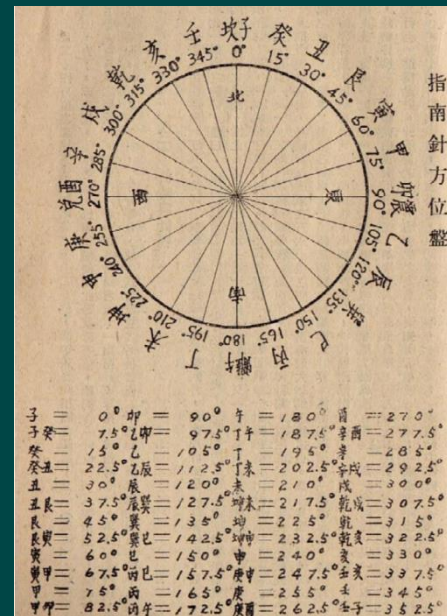 指南針方位盤
坎子 0°
癸 15°
丑 30°
艮 45°
寅 60°
甲 75°
卯震 90°
乙 105°
辰 120°
巽 135°
巳 150°
丙 165°
離午 180°
丁 195°
未 210°
坤 225°
申 240°
庚 255°
兌酉 270°
辛 285°
戌 300°
乾 315°
亥 330°
壬 345°
北
東
南
西
子 = 0° 卯 = 90° 午 = 180° 酉 = 270°
子癸 = 7.5° 乙卯 = 97.5° 丁午 = 187.5° 辛酉 = 277.5°
癸 = 15° 乙 = 105° 丁 = 195° 辛 = 285°
癸丑 = 22.5° 乙辰 = 112.5° 丁未 = 202.5° 辛戌 = 292.5°
丑 = 30° 辰 = 120° 未 = 210° 戌 = 300°
丑艮 = 37.5° 辰巽 = 127.5° 坤未 = 217.5° 乾戌 = 307.5°
艮 = 45° 巽 = 135° 坤 = 225° 乾 = 315°
艮寅 = 52.5° 巽巳 = 142.5° 坤申 = 232.5° 乾亥 = 322.5°
寅 = 60° 巳 = 150° 申 = 240° 亥 = 330°
寅甲 = 67.5° 丙巳 = 157.5° 庚申 = 247.5° 壬亥 = 337.5°
甲 = 75° 丙 = 165° 庚 = 255° 壬 = 345°
甲卯 = 82.5° 丙午 = 172.5° 庚酉 = 262.5° 壬子 = 352.5°